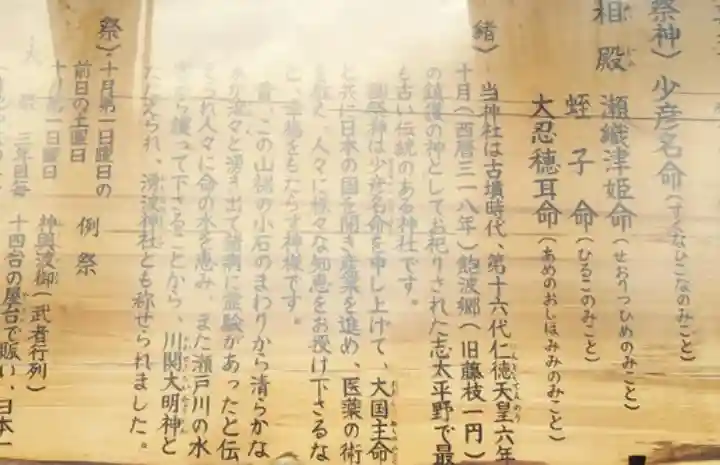 祭神）少彦名命（すくなひこなのみこと）
相殿
瀬織津姫命（せおりつひめのみこと）
蛭子命（ひるこのみこと）
大忍穂耳命（あめのおしほみみのみこと）
緒）
当神社は古墳時代、第十六代仁徳天皇六年
十月（西暦三一八年）飽波郷（旧藤枝一円）
の鎮護の神としてお祀りされた志太平野で最
も古い伝統のある神社です。
御祭神は少彦名命を申し上げて、大国主命
と共に日本の国を開き産業を進め、医薬の術
を授く、人々に様々な知恵をお授け下さるな
ど、幸福をもたらす神様です。
昔、この山裾の小石のまわりから清らかな
水が滾々と湧き出て諸病に霊験があったと伝
えられ人々に命の水を恵み、また瀬戸川の水
から護って下さることから、川関大明神と
たたえられ、湧波神社とも称せられました。
祭）・十月第一日曜日の
前日の土曜日
例祭
十月第一日曜日
大祭 三年目毎
神輿渡御（武者行列）
十四台の屋台で賑い、日本一